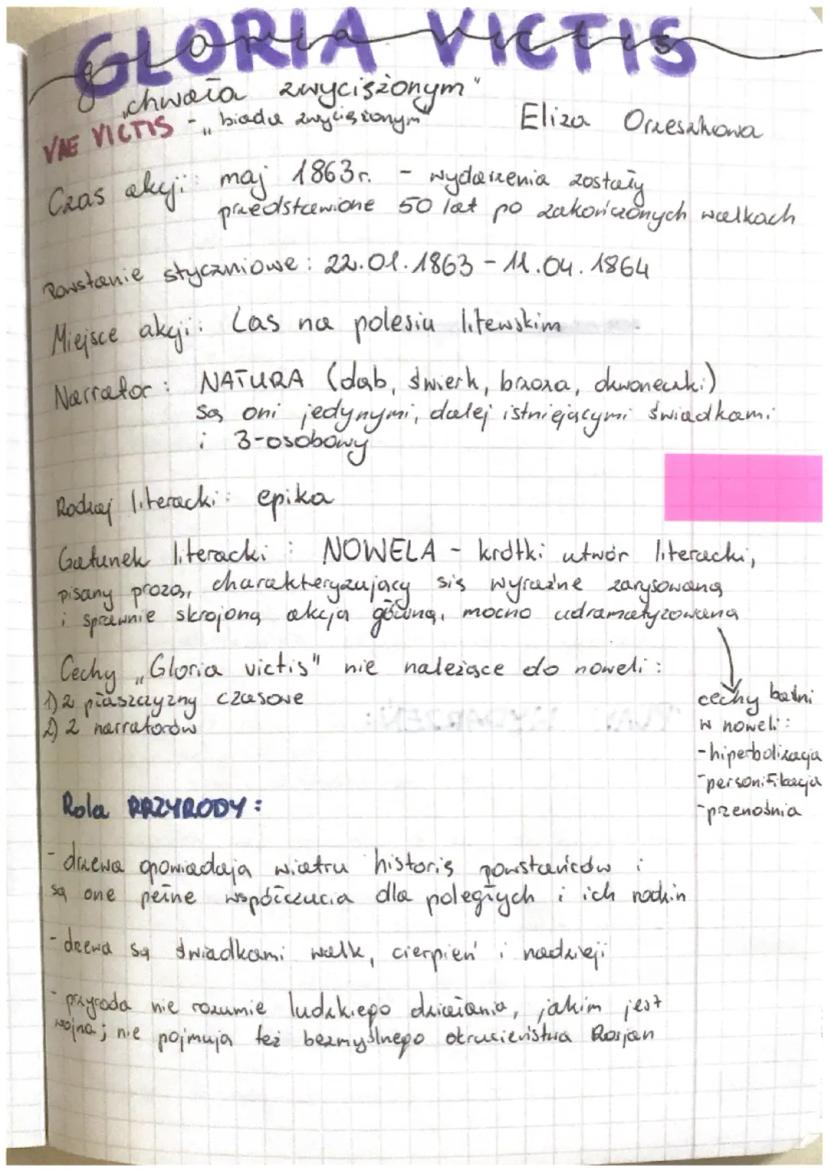 GLORIA VICTIS
gloria victis
„chwała zwyciężonym"
VAE VICTIS - „biada zwyciężonym"
Eliza Orzeszkowa
Czas akcji: maj 1863r. - wydarzenia zostały
przedstawione 50 lat po zakończonych walkach
Powstanie styczniowe: 22.01.1863 - 11.04.1864
Miejsce akcji: Las na polesiu litewskim
Narrator: NATURA (dąb, świerk, brzoza, dzwoneczki)
są oni jedynymi, dalej istniejącymi świadkami
i 3-osobowy
Rodzaj literacki: epika
Gatunek literacki: NOWELA - krótki utwór literacki,
pisany prozą, charakteryzujący się wyraźne zarysowaną
i sprawnie skrojoną akcją główną, mocno udramatyzowaną
Cechy „Gloria victis" nie należące do noweli:
1) 2 płaszczyzny czasowe
2) 2 narratorów
cechy baśni
w noweli:
-hiperbolizacja
-personifikacja
-przenośnia
Rola PRZYRODY:
- drzewa opowiadają wiatru historię powstańców i
są one pełne współczucia dla poległych i ich rodzin
- drzewa są świadkami walk, cierpień i nadzieji
- przyroda nie rozumie ludzkiego działania, jakim jest
wojna; nie pojmują też bezmyślnego okrucieństwa Rosjan